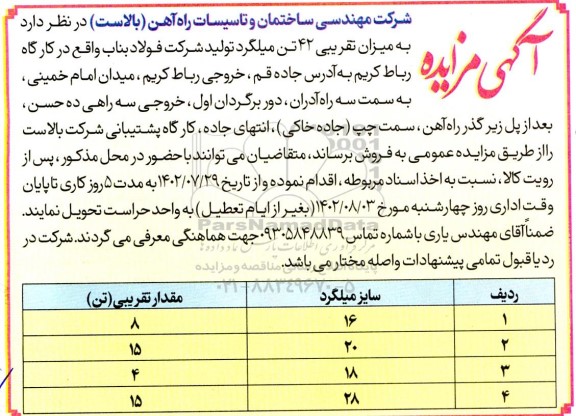 آگهی مزایده
شرکت مهندسی ساختمان و تاسیسات راه آهن (بالاست) در نظر دارد
به میزان تقریبی ۴۲ تن میلگرد تولید شرکت فولاد بناب واقع در کارگاه
رباط کریم به آدرس جاده قم ، خروجی رباط کریم ، میدان امام خمینی ،
به سمت سه راه آدران ، دور برگردان اول ، خروجی سه راهی ده حسن ،
بعد از پل زیر گذر راه آهن ، سمت چپ (جاده خاکی) ، انتهای جاده ، کارگاه پشتیبانی شرکت بالاست
را از طریق مزایده عمومی به فروش برساند، متقاضیان می توانند با حضور در محل مذکور ، پس از
رویت کالا ، نسبت به اخذ اسناد مربوطه ، اقدام نموده و از تاریخ ۱۴۰۲/۰۷/۲۹ به مدت ۵ روز کاری تا پایان
وقت اداری روز چهارشنبه مورخ ۱۴۰۲/۰۸/۰۳ (بغیر از ایام تعطیل) به واحد حراست تحویل نمایند.
ضمناً آقای مهندس یاری با شماره تماس ۰۹۳۰۵۸۴۸۸۳۹ جهت هماهنگی معرفی می گردند. شرکت در
رد یا قبول تمامی پیشنهادات واصله مختار می باشد.
پایگاه اطلاع رسانی مناقصه و مزایده
۰۲۱-۸۸۳۴۹۶۷۰-۵
ردیف سایز میلگرد مقدار تقریبی (تن)
۱ ۱۶ ۸
۲ ۲۰ ۱۵
۳ ۱۸ ۴
۴ ۲۸ ۱۵